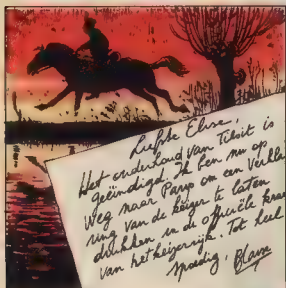 Liefste Elise,
Het onderhoud van Tilsit is
geëindigd. Ik ben nu op
weg naar Parijs om een Verkla-
ring van de keizer te laten
drukken in de officiële krant
van het keizerrijk. Tot heel
spoedig, Blaise